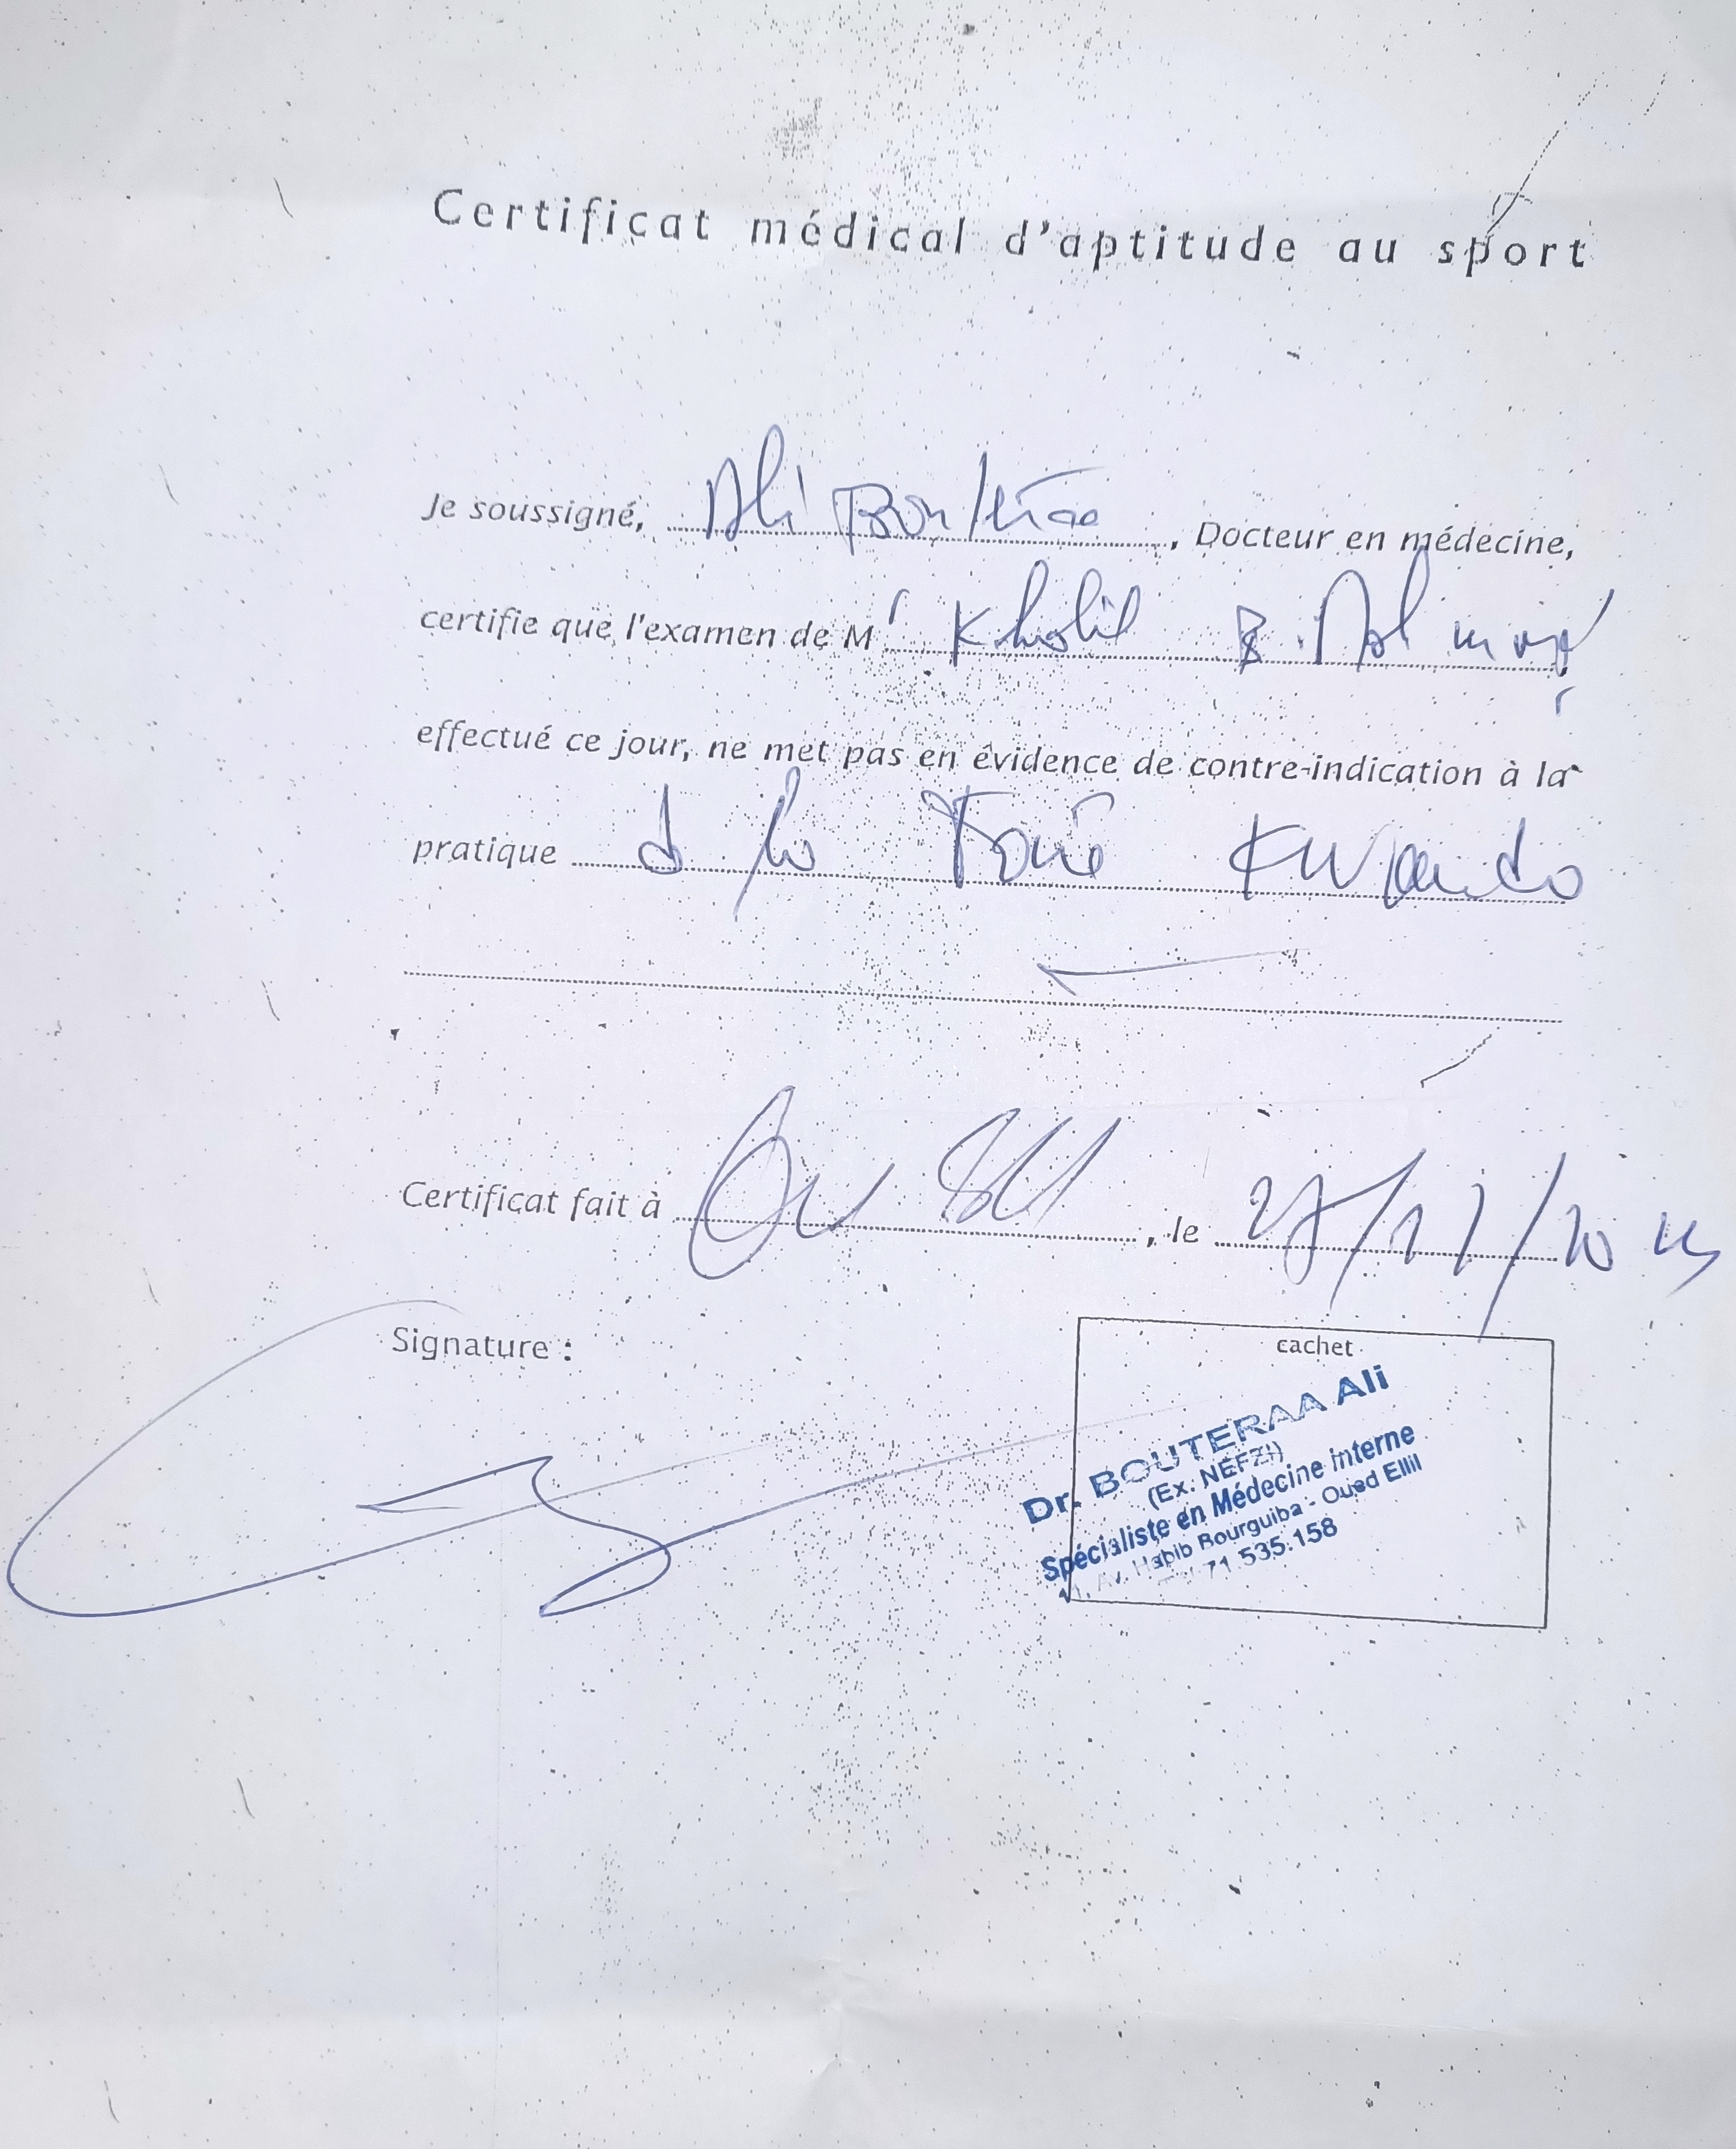 Certificat médical d'aptitude au sport
Je soussigné, Ali Bouteraa, Docteur en médecine,
certifie que l'examen de Mr Kholil B.
effectué ce jour, ne met pas en évidence de contre-indication à la
pratique d la
Certificat fait à , le 27/11/20
Signature :
cachet
Dr. BOUTERAA Ali
(Ex: NEFZI)
Spécialiste en Médecine Interne
Av. Habib Bourguiba - Oued Ellil
71 535 158